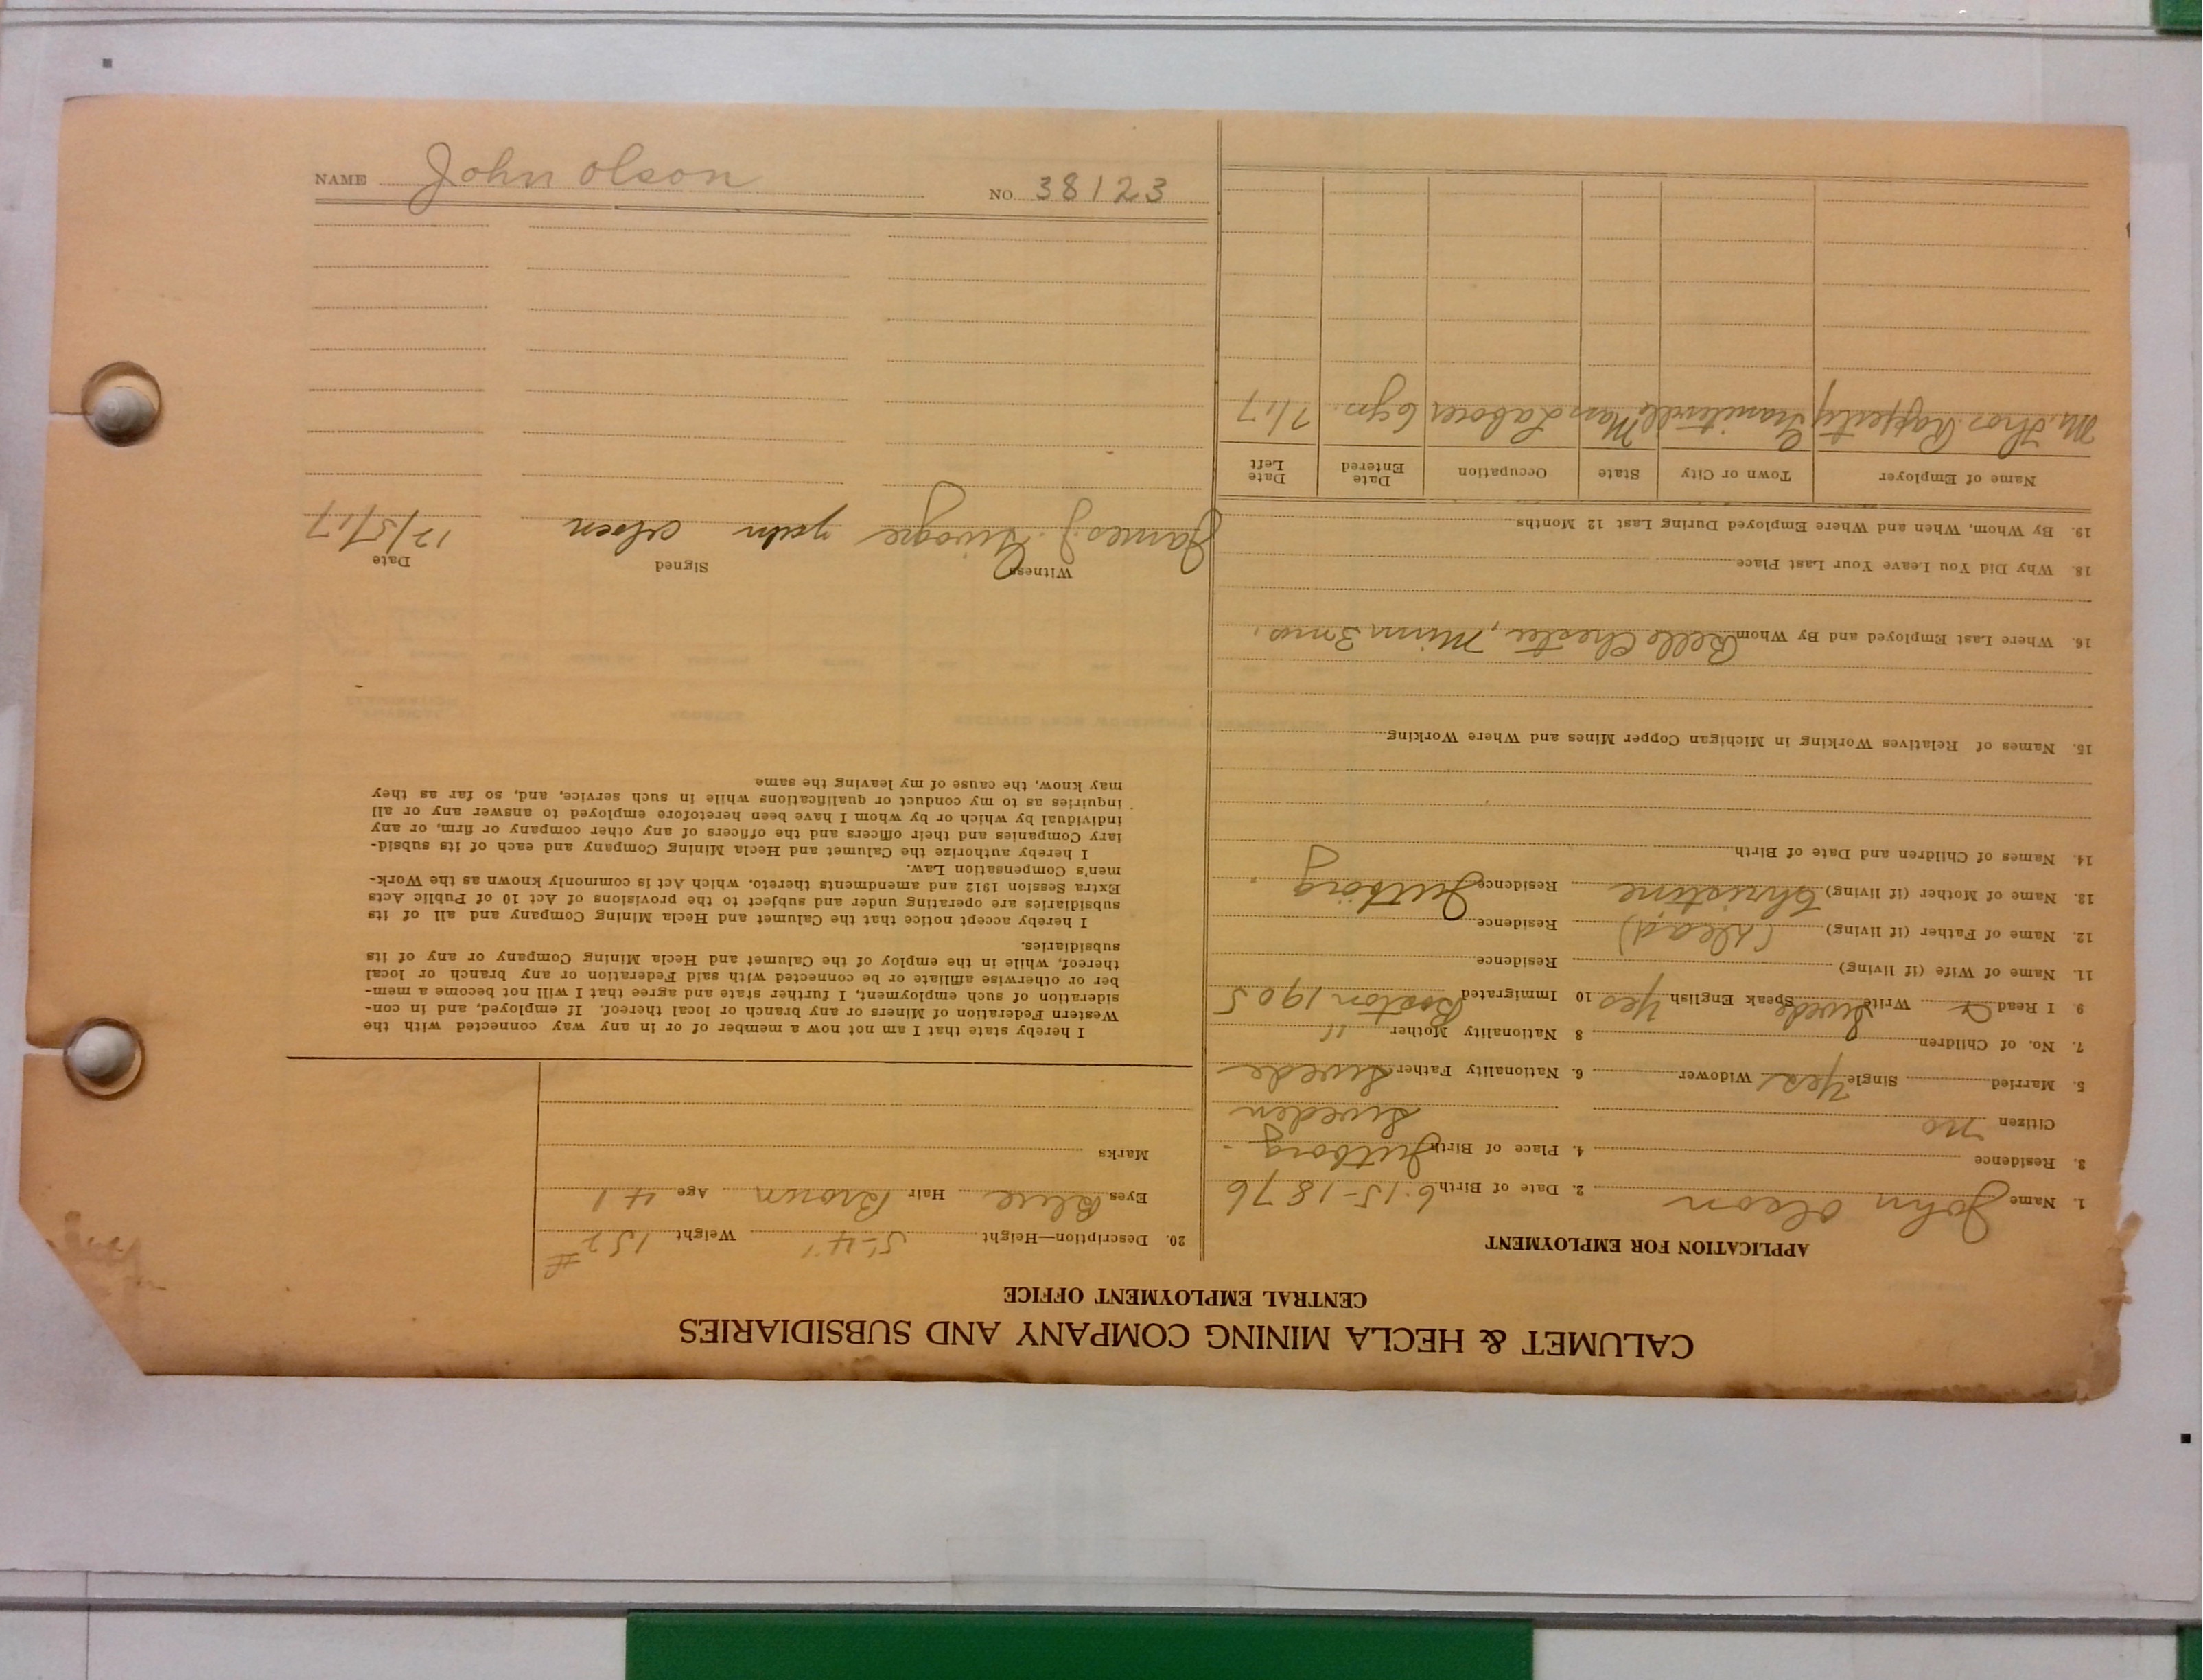 NAME John Olson NO. 38123
CALUMET & HECLA MINING COMPANY AND SUBSIDIARIES
CENTRAL EMPLOYMENT OFFICE
APPLICATION FOR EMPLOYMENT
1. Name John Olson 2. Date of Birth 6-15-1876
3. Residence 4. Place of Birth Gutborg
Citizen no Sweden
5. Married Single Yes Widower 6. Nationality Father Swede
7. No. of Children 8 Nationality Mother "
9 I Read & Write Swede Speak English Yes 10 Immigrated Boston 1905
11. Name of Wife (if living) Residence
12. Name of Father (if living) (Dead) Residence
13. Name of Mother (if living) Christine Residence Gutborg
14. Names of Children and Date of Birth
15. Names of Relatives Working in Michigan Copper Mines and Where Working
16. Where Last Employed and By Whom Belle Chester, Minn 3 mos.
18. Why Did You Leave Your Last Place
19. By Whom, When and Where Employed During Last 12 Months
Name of Employer Town or City State Occupation Date Entered Date Left
Mr. Thos. Rafferty Graniteville Mass Laborer 6 yrs. 7/17
20. Description—Height 5-4" Weight 152#
Eyes Blue Hair Brown Age 41
Marks
I hereby state that I am not now a member of or in any way connected with the
Western Federation of Miners or any branch or local thereof. If employed, and in con-
sideration of such employment, I further state and agree that I will not become a mem-
ber or otherwise affiliate or be connected with said Federation or any branch or local
thereof, while in the employ of the Calumet and Hecla Mining Company or any of its
subsidiaries.
I hereby accept notice that the Calumet and Hecla Mining Company and all of its
subsidiaries are operating under and subject to the provisions of Act 10 of Public Acts
Extra Session 1912 and amendments thereto, which Act is commonly known as the Work-
men's Compensation Law.
I hereby authorize the Calumet and Hecla Mining Company and each of its subsid-
iary Companies and their officers and the officers of any other company or firm, or any
individual by which or by whom I have been heretofore employed to answer any or all
inquiries as to my conduct or qualifications while in such service, and, so far as they
may know, the cause of my leaving the same
Witness Signed Date
James J. John Olson 12/5/17